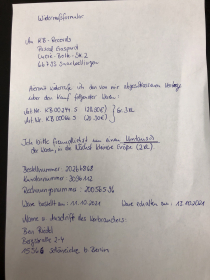 Widerrufsformular
An KB-Records
Pascal Gaspard
Lucie-Bolte-Str. 2
66793 Saarwellingen
Hiermit widerrufe ich den von mir abgeschlossenen Vertrag
über den Kauf folgender Waren:
Art. Nr. KB000294.5 (28.90€)
Art. Nr. KB00046.5 (25.90€)
Gr. 3XL
Ich bitte freundlichst um einen Umtausch
der Waren in die nächst kleinere Größe (2XL)
Bestellnummer: 20264868
Kundennummer: 3034112
Rechnungsnummer: 20056536
Ware bestellt am: 11.10.2021
Ware erhalten am: 13.10.2021
Name u. Anschrift des Verbrauchers:
Ben
Bergstraße 2-4
15366 b. Berlin